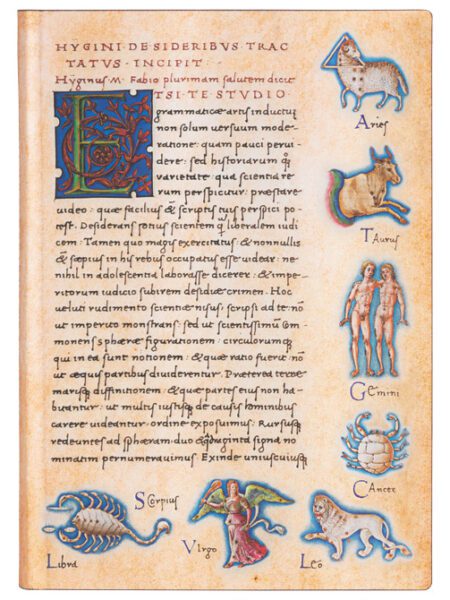 HYGINI·DE·SIDERIBVS·TRAC
TATVS·INCIPIT·
Hÿginus·M·Fabio plurimam salutem dicit
ETSI·TE·STUDIO
grammaticæ artis inductũ
non solum uersuum mode-
ratione: quam pauci perui-
dere: sed historiarum q̃q̃
varietate qua scientia re
rum perspicitur præstare
uideo: quæ facilius & scriptis tuis perspici po-
test. Desiderans potius scientem q̃ liberalem iudi
cem: Tamen quo magis exercitatus: & nonnullis
& sæpius in his rebus occupatus esse uidear: ne-
nihil in adolescentia laborasse dicerer: & impe-
ritorum iudicio subirem desidiæ crimen. Hoc
ueluti rudimento scientiæ nisus, scripsi ad te: nõ
ut imperito monstrans: sed ut scientissimũ com-
monens sphæræ figurationem: circulorumq̃
qui in ea sunt notionem: & quæ ratio fuerit nõ
ut æquis partibus diuiderentur. Præterea terræ
marisq̃ diffinitionem: & quæ partes eius non ha-
bitantur: ut multis iustisq̃ de causis hominibus
carere uideantur: ordine exposuimus: Rursusq̃
redeuntes ad sphæram: duo & q̃draginta signa no
minatim pernumerauimus. Exinde uniuscuiusq̃
Aries
Taurus
Gemini
Cancer
Leo
Virgo
Scorpius
Libra